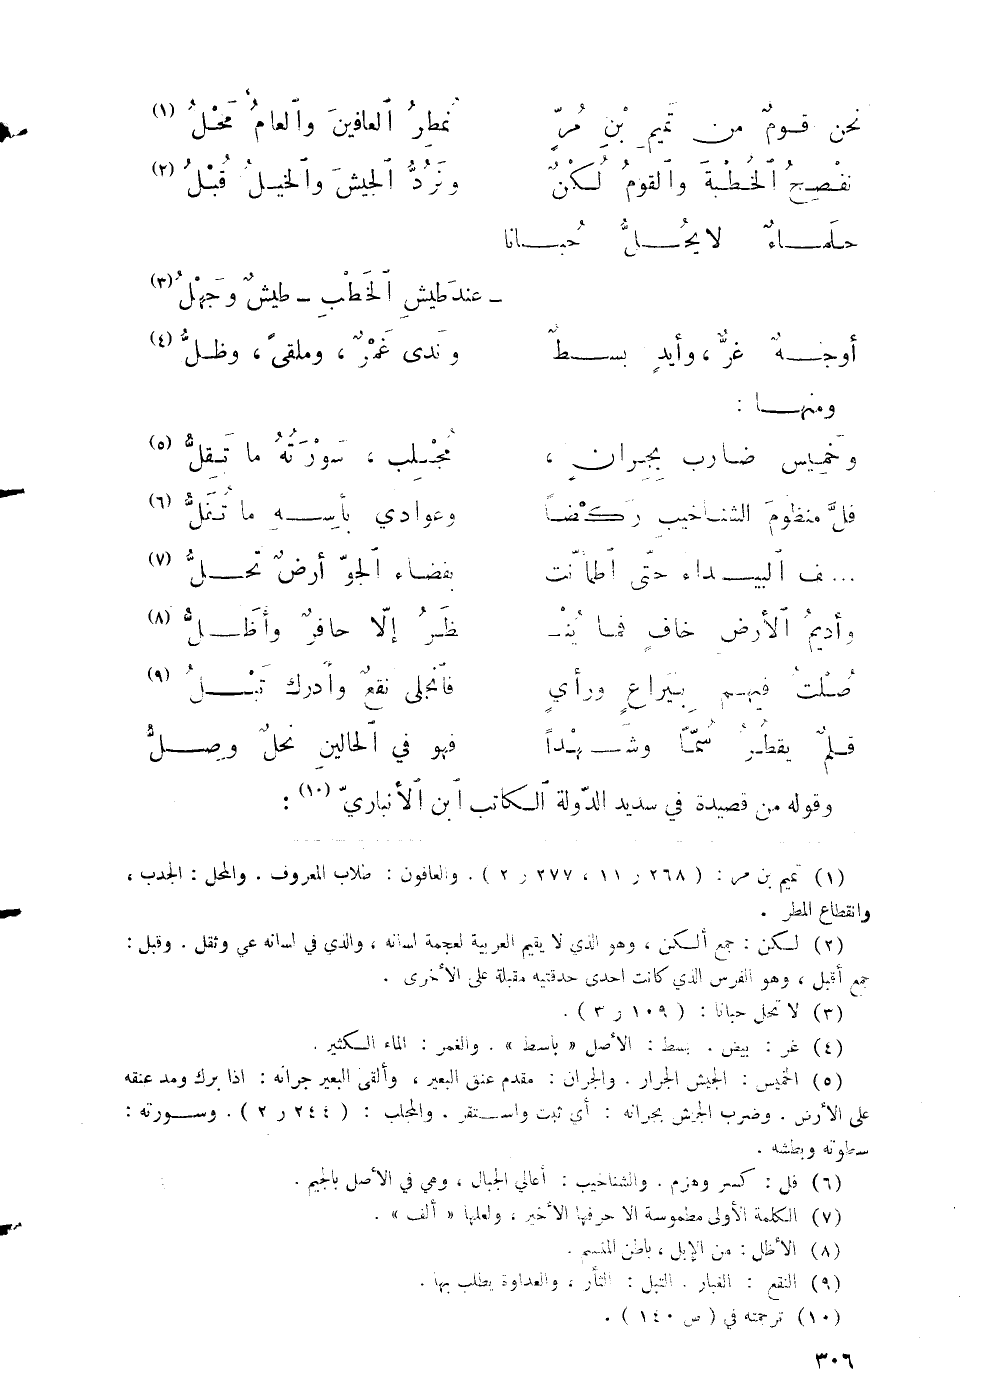 نحن قومٌ من تميمِ بْنِ مُرٍّ نُمطِرُ ٱلعافينَ وٱلعامُ مَحْلُ (١)
نفْصِحُ ٱلخُطْبةَ وٱلقومُ لُكْنٌ ونَرُدُّ ٱلجيشَ وٱلخيلُ قُبْلُ (٢)
حلَمـاءٌ لا يحُـلُّ حُبـانا
ـ عند طيشِ ٱلخَطْبِ ـ طيشٌ وجَهْلُ (٣)
أوجـهٌ غرٌّ، وأيدٍ بسـطٌ ونَدى غَمْرٌ، وملقىً، وظـلُّ (٤)
ومنهـا :
وخَميس ضارب بِجِرانٍ ، مُجْلِب ، سَوْرَتُهُ ما تَقِلُّ (٥)
فلَّ منظومَ الشناخيبِ رَكْضاً وعوادي بأسِـهِ ما تُفَلُّ (٦)
... ف ٱلبيـداء حتّى ٱطمأنت بفضاء ٱلجوّ أرضٌ تحـلُّ (٧)
وأديمُ ٱلأرضِ خافٍ فما يُنْـ ـظَرُ إلّا حافرٌ وأظَـلُّ (٨)
صُلْتَ فيهم بِيَراعٍ ورأيٍ فٱنجلى نقعٌ وأُدرك تَبْـلُ (٩)
قلمٌ يقطُرُ سُمّاً وشَـهْداً فهو في ٱلحالينِ نحلٌ وصِـلُّ
وقوله من قصيدة في سديد الدّولة ٱلكاتب ٱبن ٱلأنباريّ (١٠) :
(١) تميم بن مر : ( ٢٦٨ ر ١١ ، ٢٧٧ ر ٢ ) . والعافون : طلاب المعروف . والمحل : الجدب ،
وانقطاع المطر .
(٢) لكن : جمع ألكن ، وهو الذي لا يقيم العربية لعجمة لسانه ، والذي في لسانه عي وثقل . وقبل :
جمع أقبل ، وهو الفرس الذي كانت احدى حدقتيه مقبلة على الأخرى .
(٣) لا تحل حبانا : ( ١٠٩ ر ٣ ) .
(٤) غر : بيض . بسط : الأصل « باسط » . والغمر : الماء الكثير .
(٥) الخميس : الجيش الجرار . والجران : مقدم عنق البعير ، وألقى البعير جرانه : اذا برك ومد عنقه
على الأرض . وضرب الجيش بجرانه : أي ثبت واستقر . والمجلب : ( ٢٤٤ ر ٢ ) . وسورته :
سطوته وبطشه .
(٦) فل : كسر وهزم . والشناخيب : أعالي الجبال ، وهي في الأصل بالجيم .
(٧) الكلمة الأولى مطموسة الا حرفها الأخير ، ولعلها « ألف » .
(٨) الأظل : من الإبل ، باطن المنسم .
(٩) النقع : الغبار . التبل : الثأر ، والعداوة يطلب بها .
(١٠) ترجمته في ( ص ١٤٠ ) .
٣٠٦